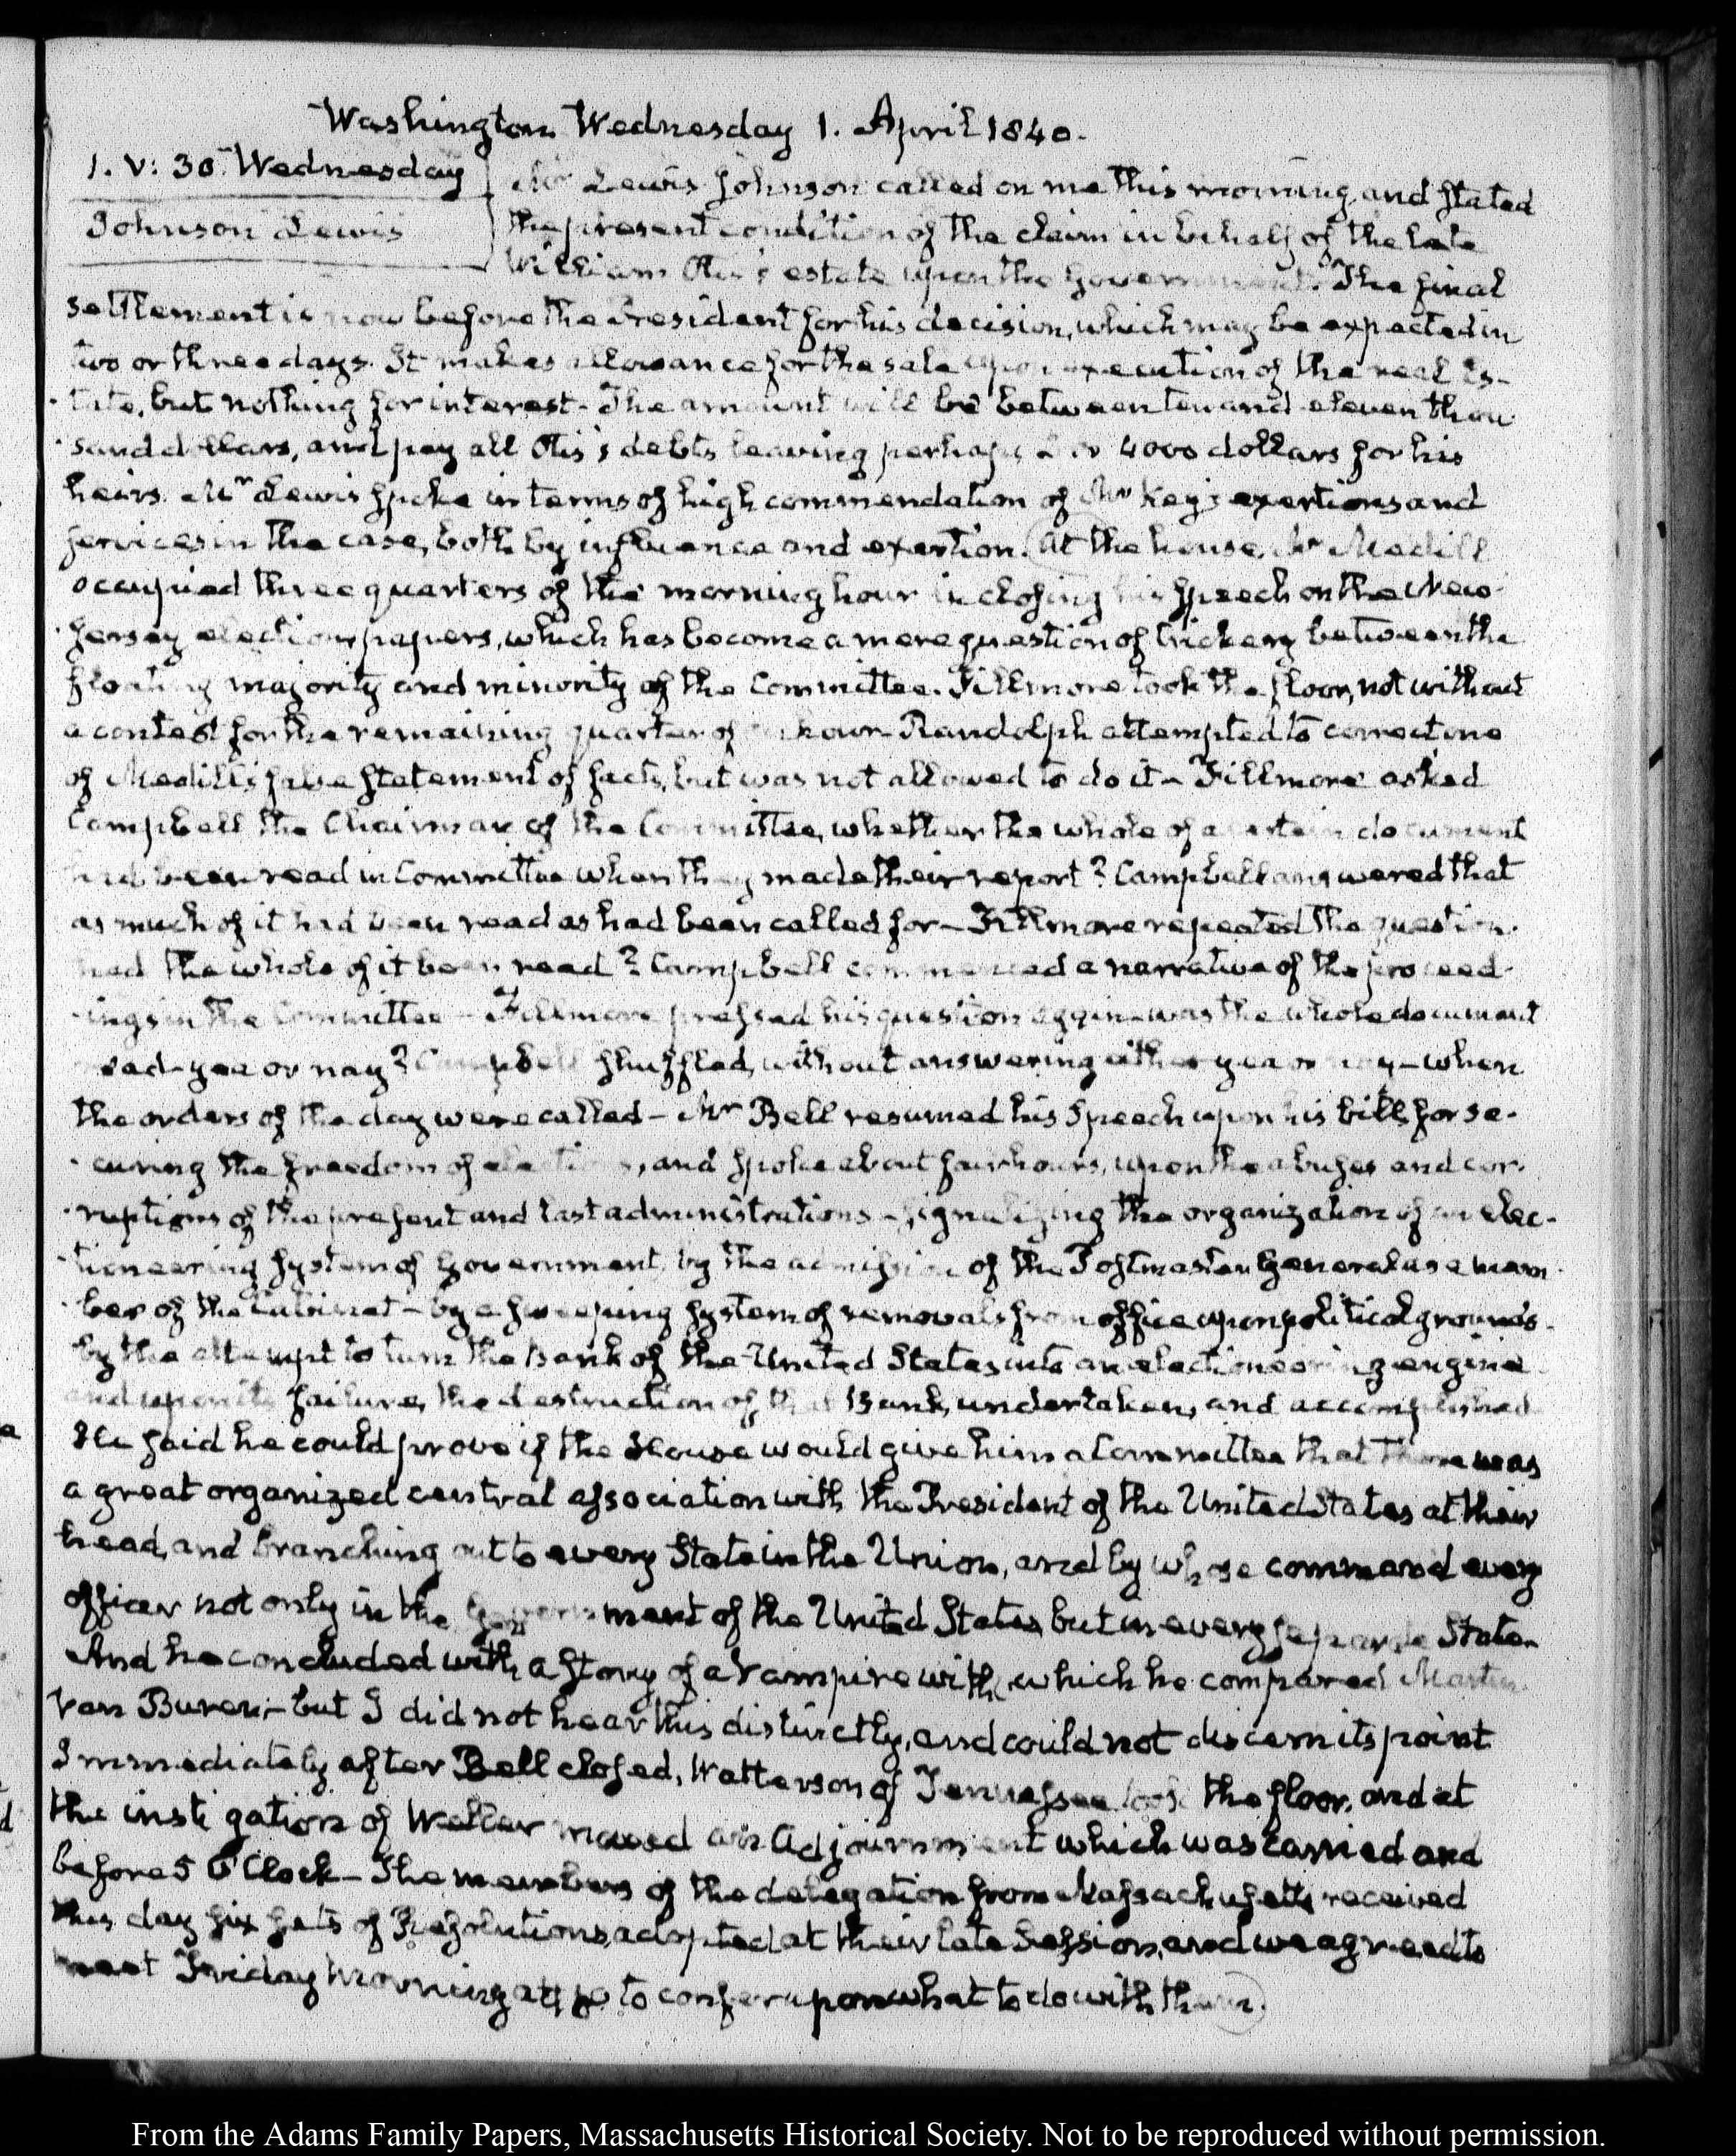 Washington Wednesday 1. April 1840.
1. V: 30. Wednesday
Johnson Lewis
Mr Lewis Johnson called on me this morning, and stated
the present condition of the claim in behalf of the late
William Otis's estate upon the Government. The final
settlement is now before the President for his decision, which may be expected in
two or three days. It makes allowance for the sale upon execution of the real Es-
tate, but nothing for interest. The amount will be between ten and eleven thou-
sand dollars, and pay all Otis's debts leaving perhaps or 4000 dollars for his
heirs. Mr Lewis spoke in terms of high commendation of Mr Key's exertions and
services in the case, both by influence and exertion. At the house, Mr Medill
occupied three quarters of the morning hour in closing his speech on the New-
Jersey election papers, which has become a mere question of trickery between the
floating majority and minority of the Committee. Fillmore took the floor, not without
a contest for the remaining quarter of hour- Randolph attempted to correct one
of Medill's false statement of facts, but was not allowed to do it- Fillmore asked
Campbell the Chairman of the Committee, whether the whole of a certain document
had been read in Committee when they made their report? Campbell answered that
as much of it had been read as had been called for- Fillmore repeated the question.
had the whole of it been read? Campbell commenced a narrative of the proceed-
ings in the Committee- Fillmore pressed his question again- was the whole document
read- yea or nay? Campbell shuffled, without answering either yea or nay- when
the orders of the day were called- Mr Bell resumed his Speech upon his bill for se-
curing the freedom of elections, and spoke about four hours, upon the abuses and cor-
ruptions of the present and last administrations- signalizing the organization of an elec-
tioneering system of Government, by the admission of the Postmaster General as a mem-
ber of the Cabinet- by a sweeping system of removals from office upon political grounds-
by the attempt to turn the Bank of the United States into an electioneering engine
and upon its failure, the destruction of that Bank, undertaken, and accomplished
He said he could prove if the House would give him a Committee that there was
a great organized central association with the President of the United States at their
head, and branching out to every State in the Union, and by whose command every
officer not only in the Government of the United States but in every separate State-
And he concluded with a story of a Vampire with which he compared Martin
Van Buren;- but I did not hear this distinctly, and could not discern its point
Immediately after Bell closed, Watterson of Tennessee took the floor, and at
the instigation of Weller moved an adjournment which was carried and
before 5 O'Clock- The members of the delegation from Massachusetts received
this day six sets of Resolutions, adopted at their late Session, and we agreed to
meet Friday morning at 10 to confer upon what to do with them.
From the Adams Family Papers, Massachusetts Historical Society. Not to be reproduced without permission.